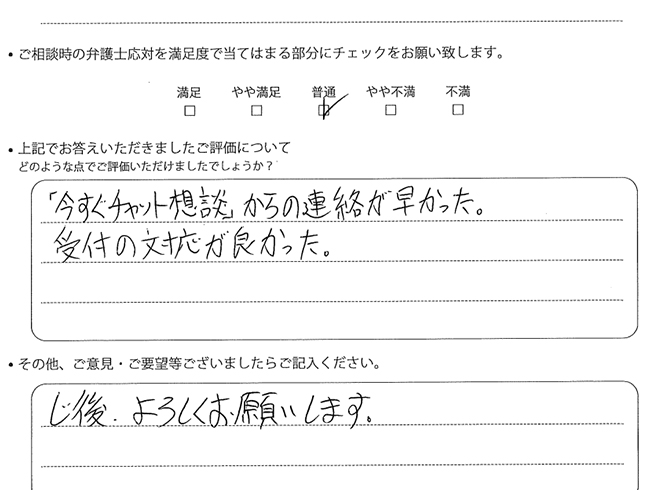 ・ご相談時の弁護士応対を満足度で当てはまる部分にチェックをお願い致します。
満足 やや満足 普通 やや不満 不満
□ □ ☑ □ □
・上記でお答えいただきましたご評価について
どのような点でご評価いただけましたでしょうか？
「今すぐチャット想談」からの連絡が早かった。
受付の対応が良かった。
・その他、ご意見・ご要望等ございましたらご記入ください。
じ後、よろしくお願いします。